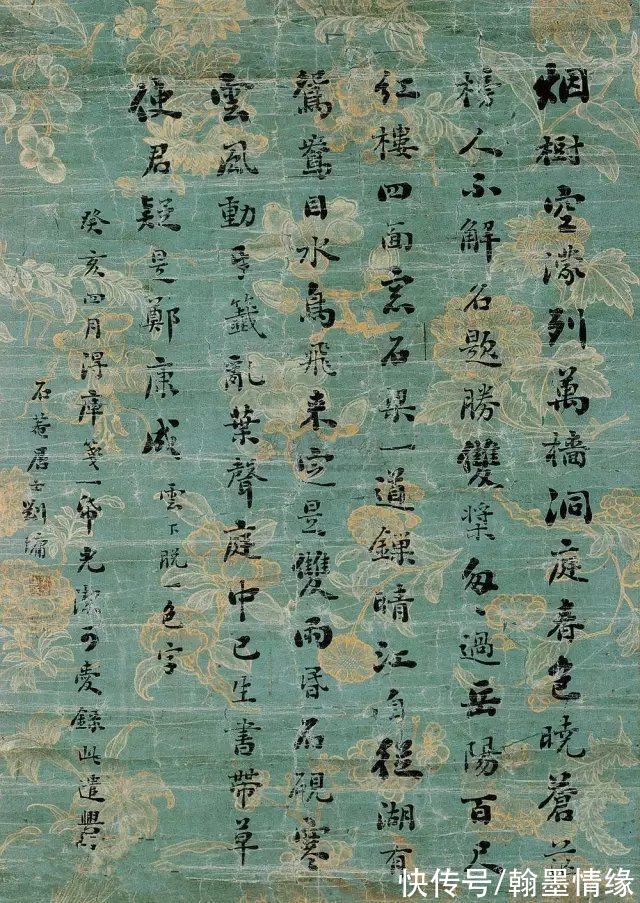 烟樹空濛列萬檣洞庭春色曉蒼茫
榜人不解名題勝雙槳匆〻過岳陽百尺
紅樓四面窓石梁一道鎖晴江自從湖有
鴛鴦目水鳥飛來定是雙雨昏石硯寒
雲風動牙籤亂葉聲庭中已生書帶草
使君疑是鄭康成 雲下脫一色字
癸亥四月得庫箋一帋光潔可愛錄此遣興
石菴居士劉墉
快传号/翰墨情缘